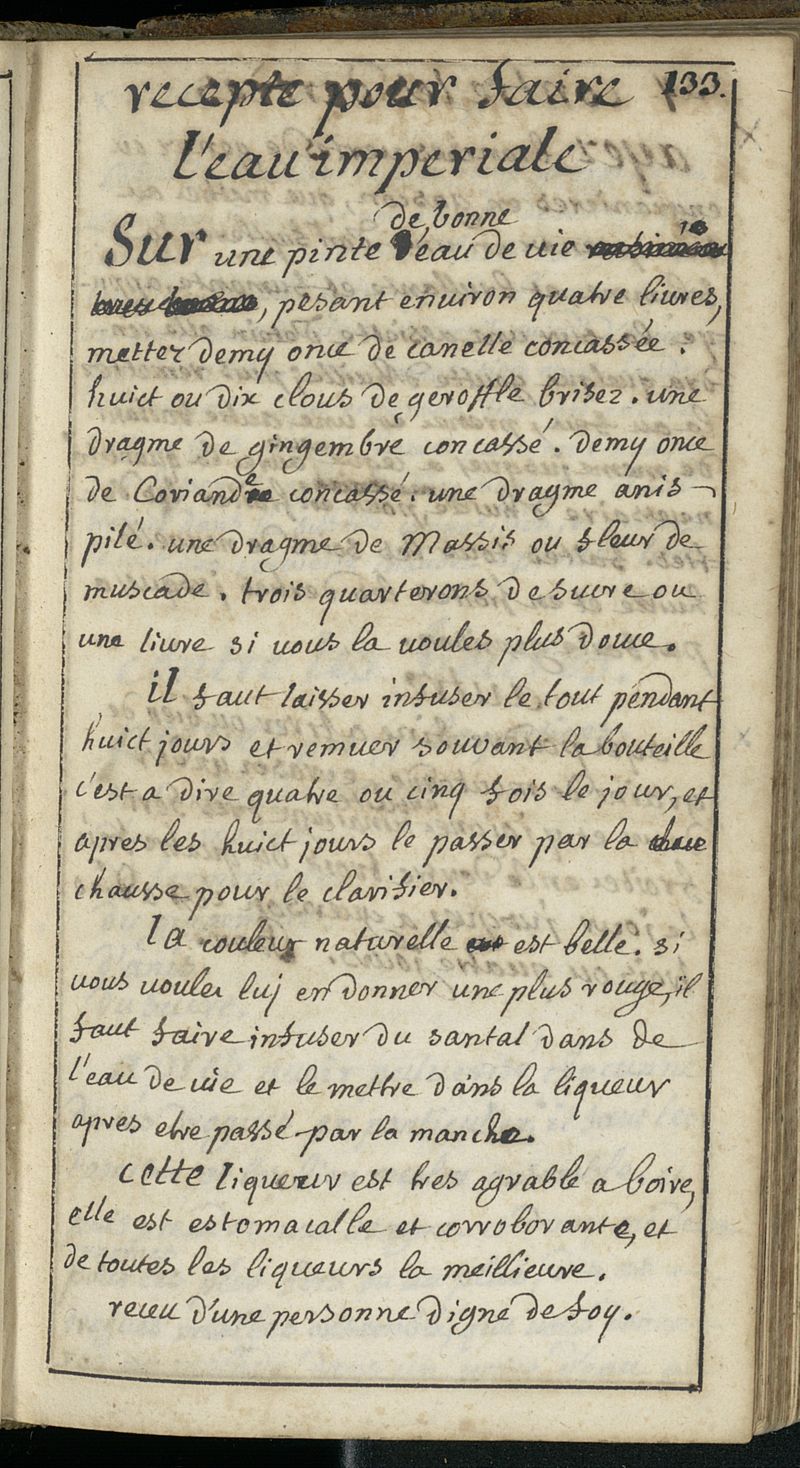 133.
recepte pour faire
l'eau imperiale
de bonne
Sur une pinte eau de vie
, pesant environ quatre livres,
mettez demy once de canelle concassée.
huict ou dix clous de geroffle brisez. une
dragme de gingembre concassé. demy once
de Coriandre concassé. une dragme anis
pilé. une dragme de Massis ou fleur de
muscade. trois quarterons de sucre ou
une livre si vous la voules plus douce.
il faut laisser infuser le tout pendant
huict jours et remuer souvant la bouteille
c'est a dire quatre ou cinq fois le jour, et
apres les huict jours le passer par la
chausse pour le clarifier.
la couleur naturelle est belle. si
vous voulez luj en donner une plus rouge, il
faut faire infuser du santal dans de
l'eau de vie et le mettre dans la liqueur
apres etre passé par la manche.
cette liqueur est tres agrable a boire,
elle est estomacalle et corroborante, et
de toutes les liqueurs la meillieure.
receu d'une personne digne de foy.